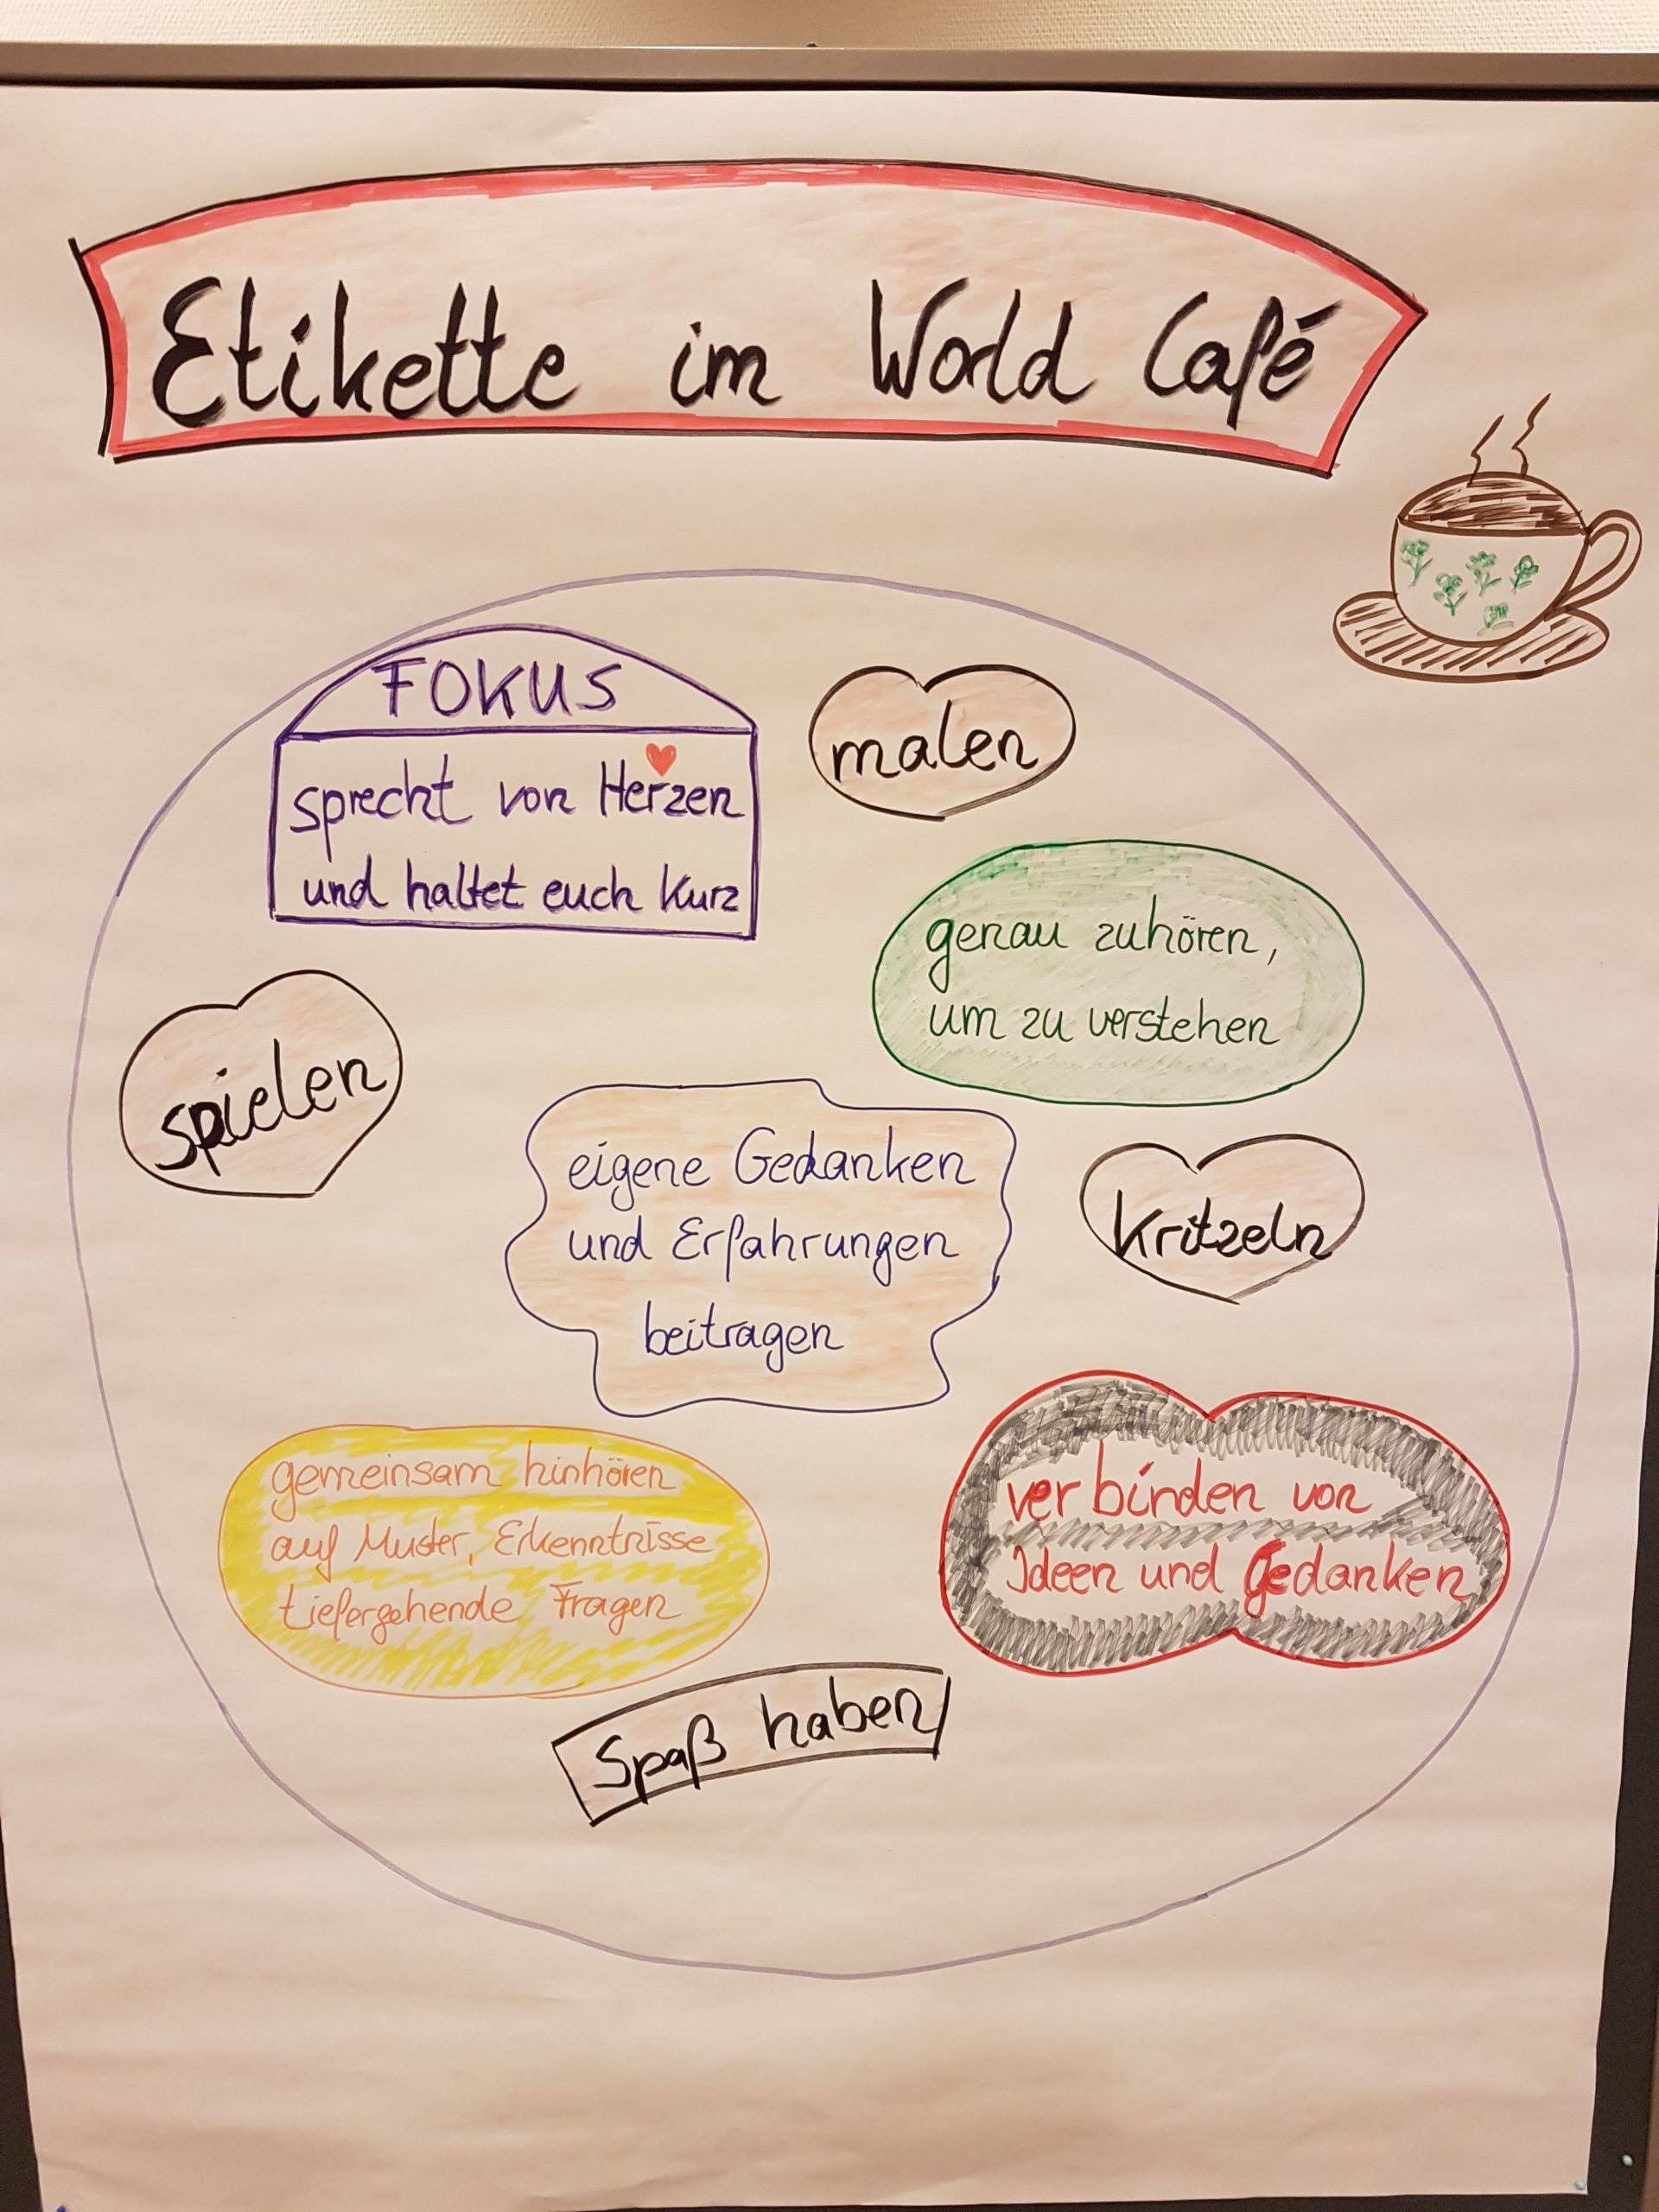 Etikette im World Café
FOKUS
sprecht von Herzen
und haltet euch kurz
malen
genau zuhören,
um zu verstehen
spielen
eigene Gedanken
und Erfahrungen
beitragen
kritzeln
gemeinsam hinhören
auf Muster, Erkenntnisse
tiefergehende Fragen
verbinden von
Ideen und Gedanken
Spaß haben